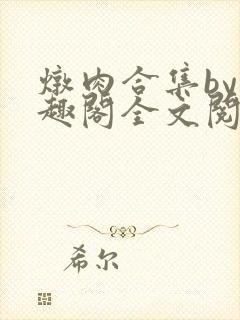 燉肉合集by
趣閣全文閱
希尔